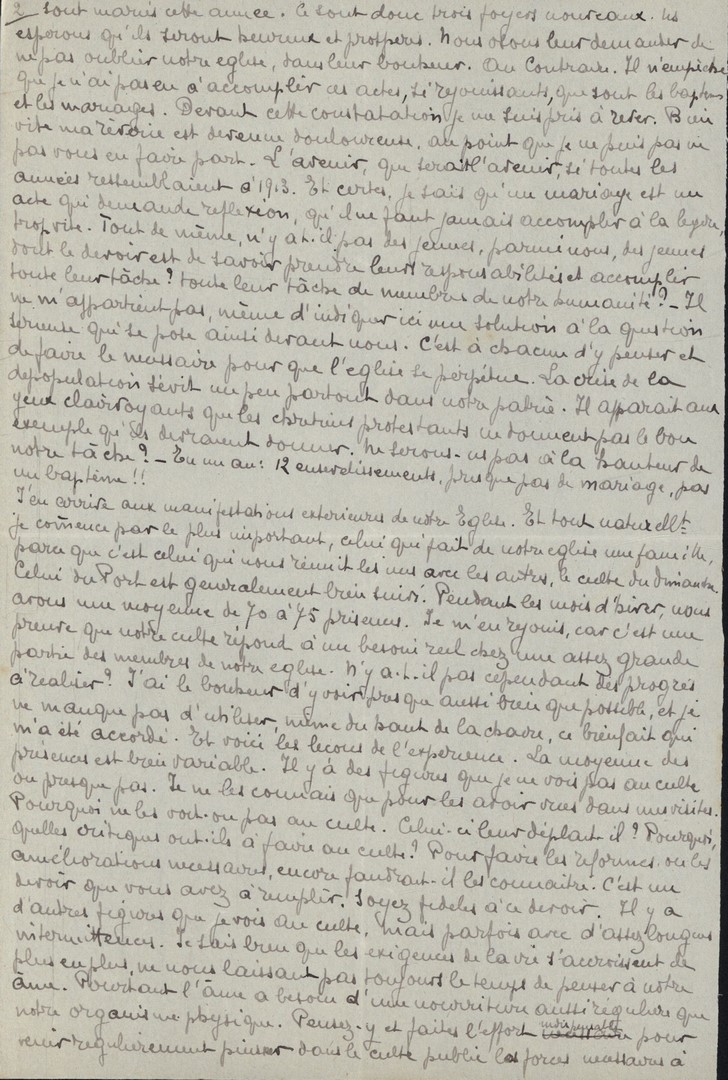 2 sont mariés cette année. Ce sont donc trois foyers nouveaux. Ns
espérons qu'ils seront heureux et prospères. Nous osons leur demander de
ne pas oublier notre église, dans leur bonheur. Au Contraire. Il n'empêche
que je n'ai pas eu à accomplir ces actes, si réjouissants, que sont les baptêmes
et les mariages. Devant cette constatation je me suis pris à rêver. Bien
vite ma rêverie est devenue douloureuse, au point que je ne puis pas ne
pas vous en faire part. L'avenir, que serait l'avenir, si toutes les
années ressemblaient à 1913. Et certes, je sais qu'un mariage est un
acte qui demande réflexion, qu'il ne faut jamais accomplir à la légère,
trop vite. Tout de même, n'y a t-il pas des jeunes, parmi nous, des jeunes
dont le devoir est de savoir prendre leurs responsabilités et accomplir
toute leur tâche? toute leur tâche de membres de notre humanité? - Il
ne m'appartient pas, même d'indiquer ici une solution à la question
sérieuse qui se pose ainsi devant nous. C'est à chacun d'y penser et
de faire le nécessaire pour que l'église se perpétue. La crise de la
dépopulation sévit un peu partout dans notre patrie. Il apparait aux
yeux clairvoyants que les chrétiens protestants ne donnent pas le bon
exemple qu'ils devraient donner. Ne serons-ns pas à la hauteur de
notre tâche? - En un an: 12 ensevelissements, presque pas de mariage, pas
un baptême!!
J'en arrive aux manifestations extérieures de notre Eglise. Et tout naturellt
je commence par le plus important, celui qui fait de notre église une famille,
parce que c'est celui qui nous réunit les uns avec les autres, le culte du dimanche.
Celui du Port est généralement bien suivi. Pendant les mois d'hiver, nous
avons une moyenne de 70 à 75 présences. Je m'en réjouis, car c'est une
preuve que notre culte répond à un besoin réel chez une assez grande
partie des membres de notre église. N'y a-t-il pas cependant des progrès
à réaliser? J'ai le bonheur d'y voir presque aussi bien que possible, et je
ne manque pas d'utiliser, même du haut de la chaire, ce bienfait qui
m'a été accordé. Et voici les leçons de l'expérience. La moyenne des
présences est bien variable. Il y a des figures que je ne vois pas au culte
ou presque pas. Je ne les connais que pour les avoir vues dans mes visites.
Pourquoi ne les voit-on pas au culte. Celui-ci leur déplait-il? Pourquoi,
quelles critiques ont-ils à faire au culte? Pour faire les réformes ou les
améliorations nécessaires, encore faudrait-il les connaitre. C'est un
devoir que vous avez à remplir. Soyez fidèles à ce devoir. Il y a
d'autres figures que je vois au culte, mais parfois avec d'assez longues
intermittences. Je sais bien que les exigences de la vie s'accroissent de
plus en plus, ne nous laissant pas toujours le temps de penser à notre
âme. Pourtant l'âme a besoin d'une nourriture aussi régulière que
notre organisme physique. Pensez-y et faites l'effort indispensable pour
venir régulièrement puiser dans le culte public les forces nécessaires à